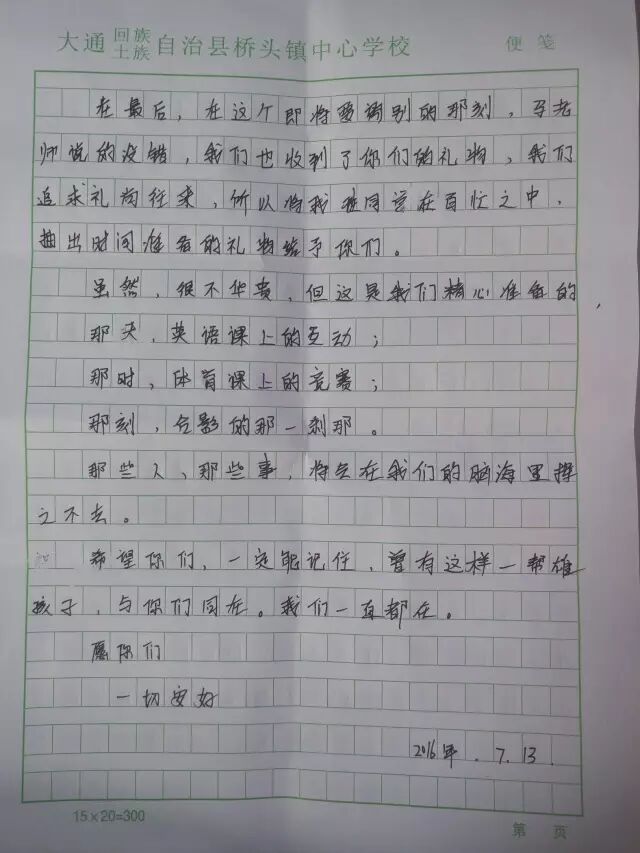 大通回族土族自治县桥头镇中心学校 便笺
在最后,在这个即将要离别的那刻,马老
师说的没错,我们也收到了你们的礼物,我们
追求礼尚往来,所以将我班同学在百忙之中,
抽出时间准备的礼物给予你们。
虽然,很不华贵,但这是我们精心准备的,
那天,英语课上的互动;
那时,体育课上的竞赛;
那刻,合影的那一刹那。
那些人,那些事,将会在我们的脑海里挥
之不去。
希望你们,一定能记住,曾有这样一帮雄
孩子,与你们同在。我们一直都在。
愿你们
一切安好
2016年.7.13
15×20=300
第 页